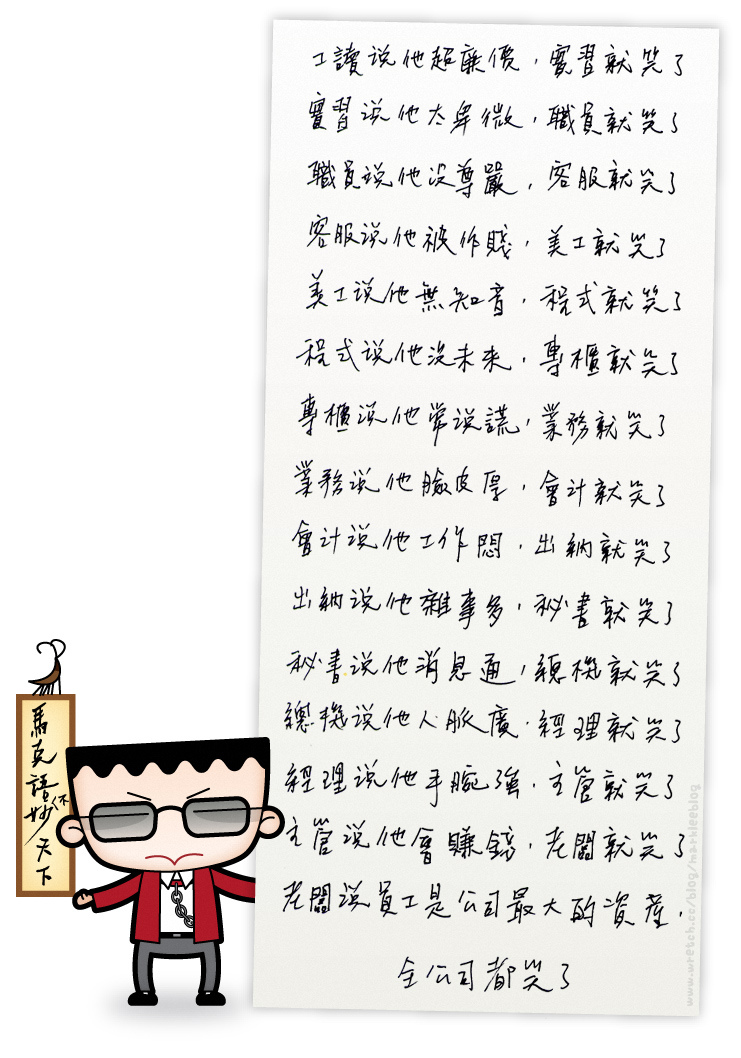 工讀说他超廉價，實習就笑了
實習说他太卑微，職員就笑了
職員说他没尊嚴，客服就笑了
客服说他被作賤，美工就笑了
美工说他無知音，程式就笑了
程式说他没未来，專櫃就笑了
專櫃说他常说謊，業務就笑了
業務说他臉皮厚，會計就笑了
會計说他工作悶，出納就笑了
出納说他雜事多，秘書就笑了
秘書说他消息通，總機就笑了
總機说他人脈廣，經理就笑了
經理说他手腕強，主管就笑了
主管说他會賺錢，老闆就笑了
老闆说員工是公司最大的資產，
全公司都笑了
馬克語妙天下
不
www.wretch.cc/blog/markleeblog